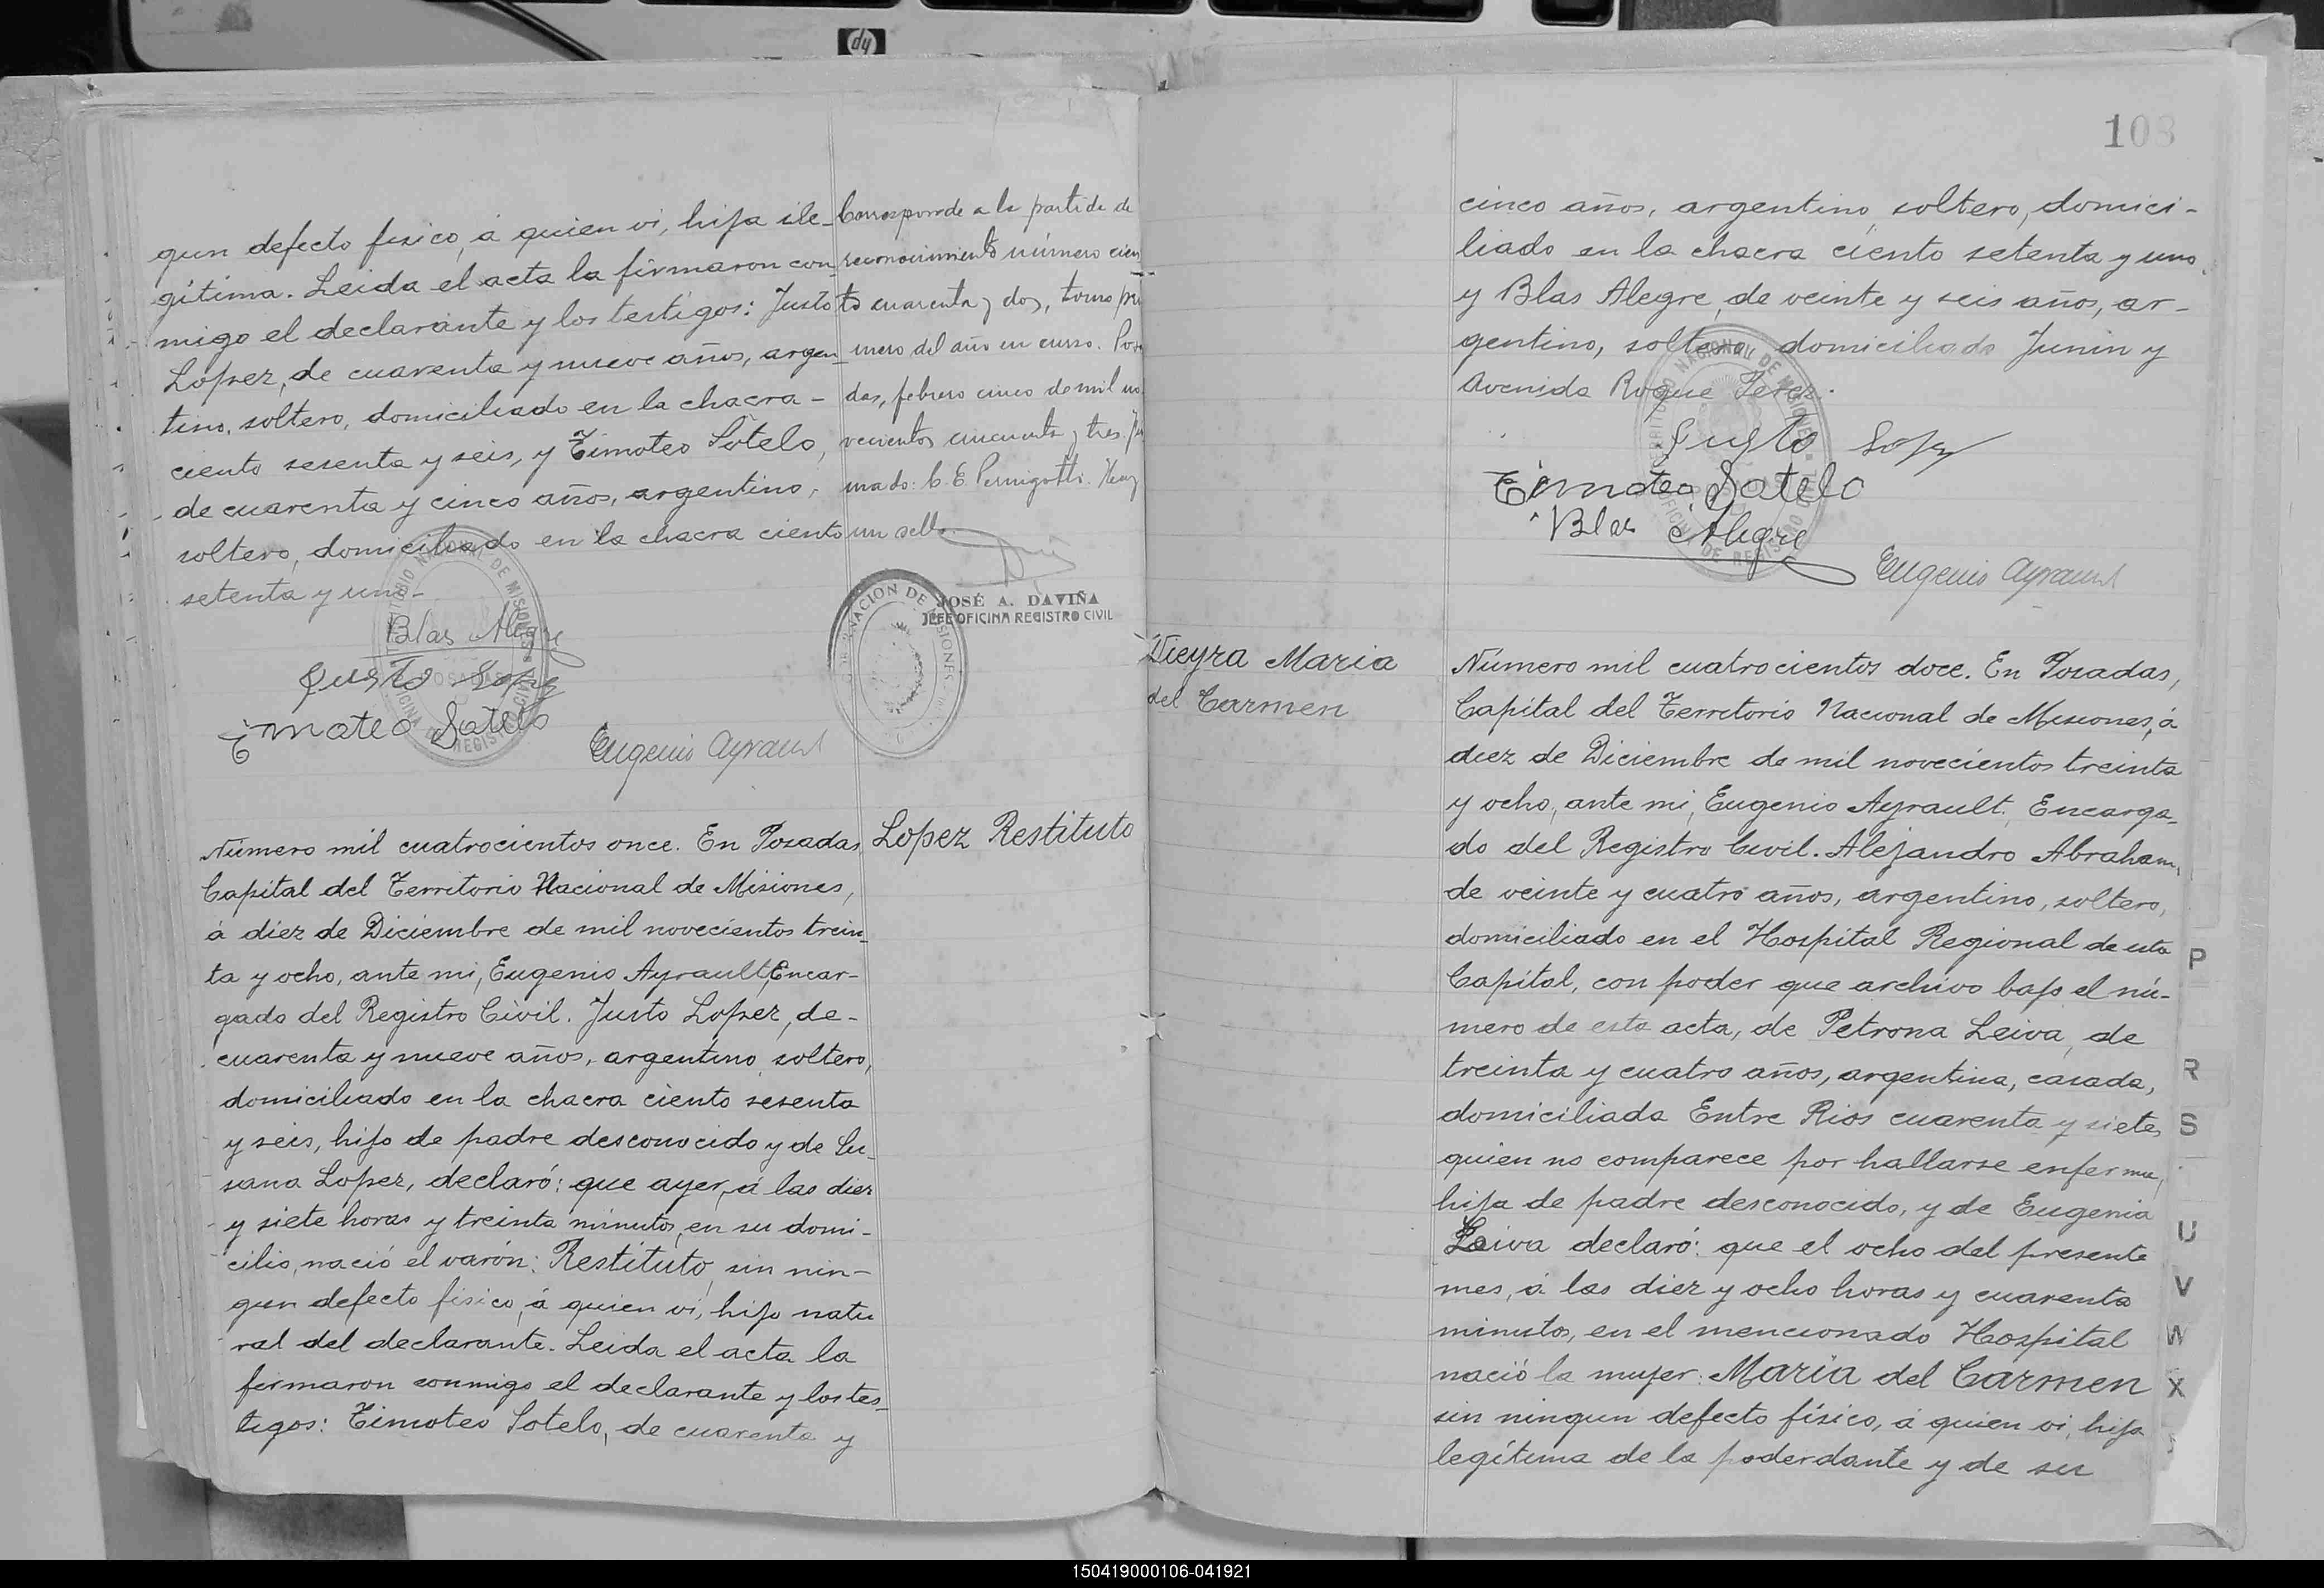 gun defecto fisico, á quien vi, hija ile-
gítima. Leida el acta la firmaron con
migo el declarante y los testigos: Justo
Lopez, de cuarenta y nueve años, argen
tino, soltero, domiciliado en la chacra -
ciento sesenta y seis, y Timoteo Sotelo,
de cuarenta y cinco años, argentino,
soltero, domiciliado en la chacra ciento
setenta y uno-
Blas Alegre
Justo Lopez
Timoteo Sotelo
Eugenio Ayrault
Corresponde a la partida de
reconocimiento número cien
to cuarenta y dos, tomo pri
mero del año en curso. Posa
das, febrero cinco de mil no
vecientos cincuenta y tres. Fir
mado: C. E. Pernigotti. Hay
un sello.
JOSÉ A. DAVIÑA
JEFE OFICINA REGISTRO CIVIL
Lopez Restituto
Número mil cuatrocientos once. En Posadas,
Capital del Territorio Nacional de Misiones,
á diez de Diciembre de mil novecientos trein-
ta y ocho, ante mi, Eugenio Ayrault, Encar-
gado del Registro Civil. Justo Lopez, de-
cuarenta y nueve años, argentino, soltero,
domiciliado en la chacra ciento sesenta
y seis, hijo de padre desconocido y de Su-
sana Lopez, declaró: que ayer, á las diez
y siete horas y treinta minutos, en su domi-
cilio, nació el varón: Restituto, sin nin-
gun defecto fisico, á quien vi, hijo natu
ral del declarante. Leida el acta la
firmaron conmigo el declarante y los tes-
tigos: Timoteo Sotelo, de cuarenta y
103
cinco años, argentino soltero, domici-
liado en la chacra ciento setenta y uno,
y Blas Alegre, de veinte y seis años, ar-
gentino, soltero, domiciliado Junin y
Avenida Roque Perez.
Justo Lopez
Timoteo Sotelo
Blas Alegre
Eugenio Ayrault
Vieyra Maria
del Carmen
Número mil cuatrocientos doce. En Posadas,
Capital del Territorio Nacional de Misiones, á
diez de Diciembre de mil novecientos treinta
y ocho, ante mi, Eugenio Ayrault, Encarga-
do del Registro Civil. Alejandro Abraham,
de veinte y cuatro años, argentino, soltero,
domiciliado en el Hospital Regional de esta
Capital, con poder que archivo bajo el nú-
mero de esta acta, de Petrona Leiva, de
treinta y cuatro años, argentina, casada,
domiciliada Entre Rios cuarenta y siete,
quien no comparece por hallarse enferma,
hija de padre desconocido, y de Eugenia
Leiva declaró: que el ocho del presente
mes, á las diez y ocho horas y cuarenta
minutos, en el mencionado Hospital
nació la mujer: Maria del Carmen
sin ningun defecto físico, á quien vi, hija
legítima de la poderdante y de su
P
R
S
U
V
W
X
150419000106-041921